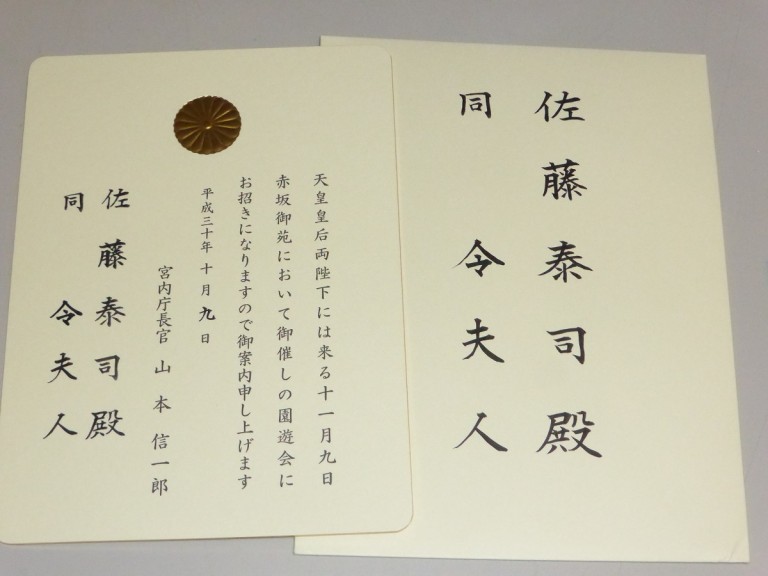 天皇皇后両陛下には来る十一月九日
赤坂御苑において御催しの園遊会に
お招きになりますので御案内申し上げます
平成三十年十月九日
宮内庁長官 山本信一郎
佐藤泰司殿
同 令夫人
佐藤泰司殿
同 令夫人